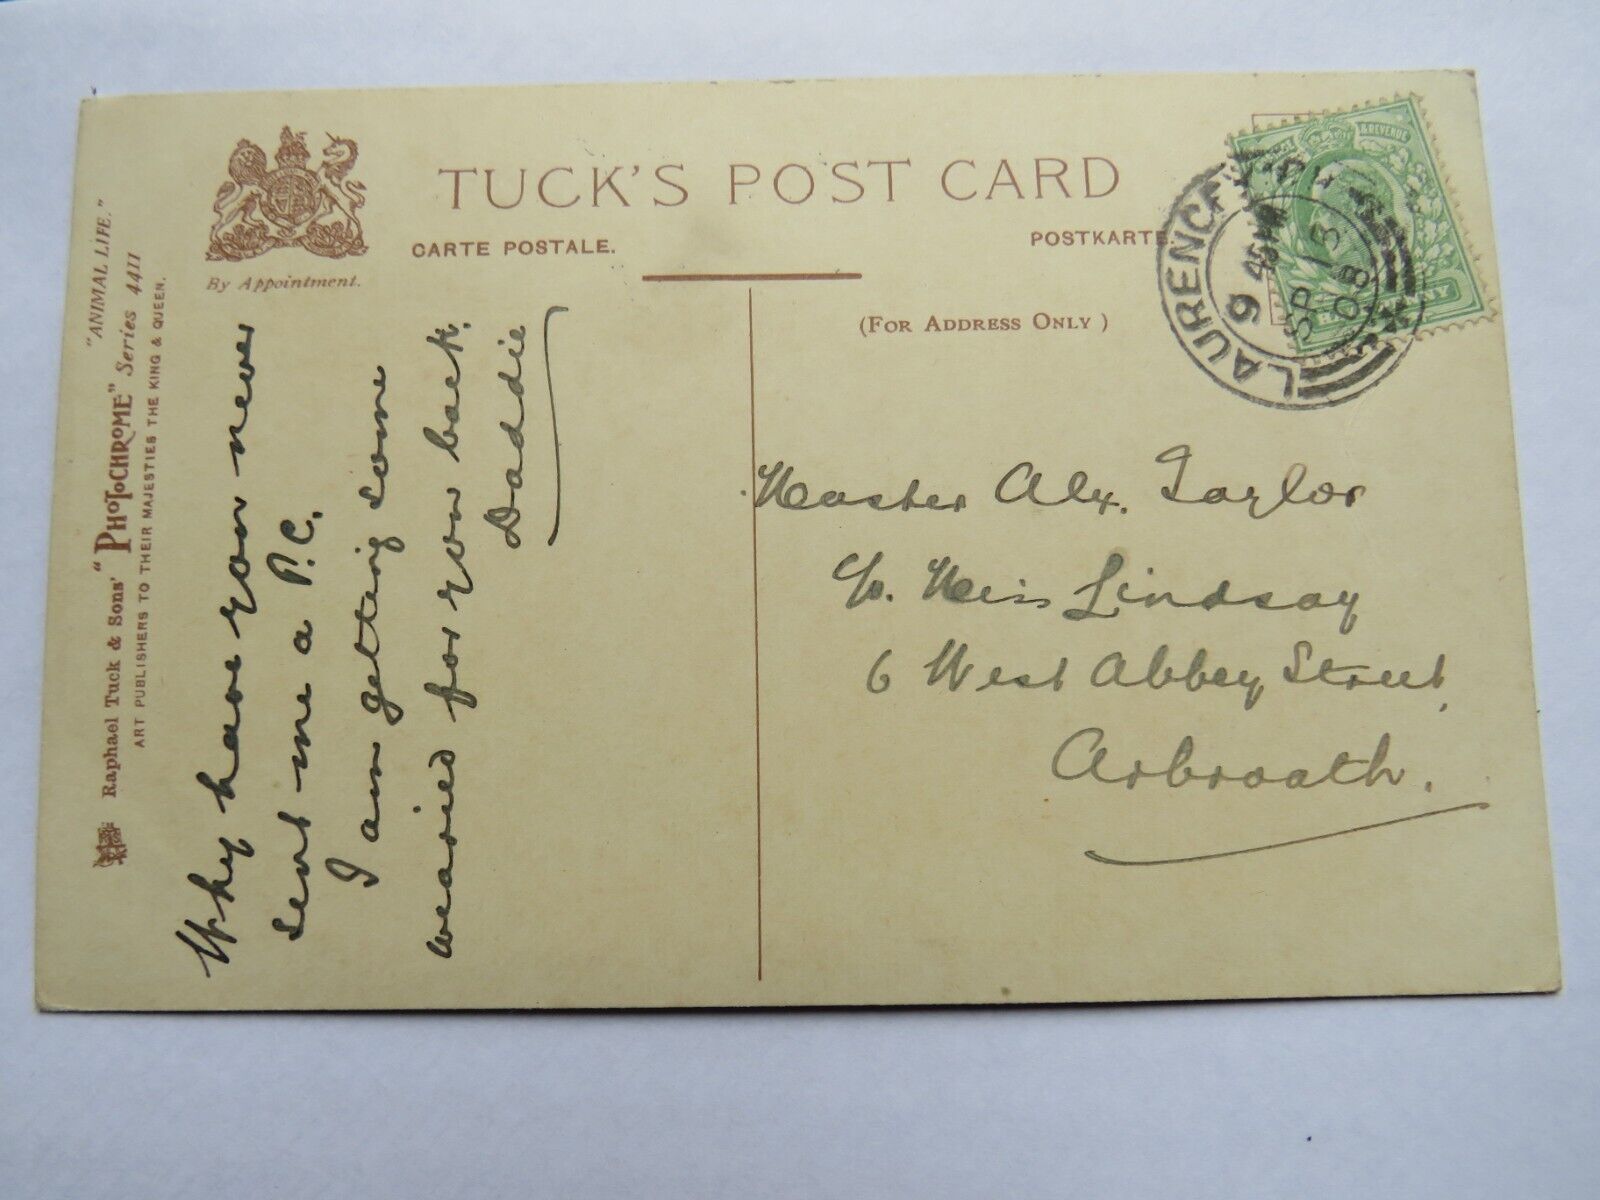 TUCK'S POST CARD
CARTE POSTALE.
POSTKARTE.
By Appointment.
(FOR ADDRESS ONLY)
"ANIMAL LIFE."
Raphael Tuck & Sons' "PHOTOCHROME" Series 4411
ART PUBLISHERS TO THEIR MAJESTIES THE KING & QUEEN.
Why have you never
sent me a P.C.
I am getting some
wearied for you back.
Daddie
Master Alx. Taylor
c/o. Miss Lindsay
6 West Abbey Street,
Arbroath.
& REVENUE
LAURENCE
SP 13
08